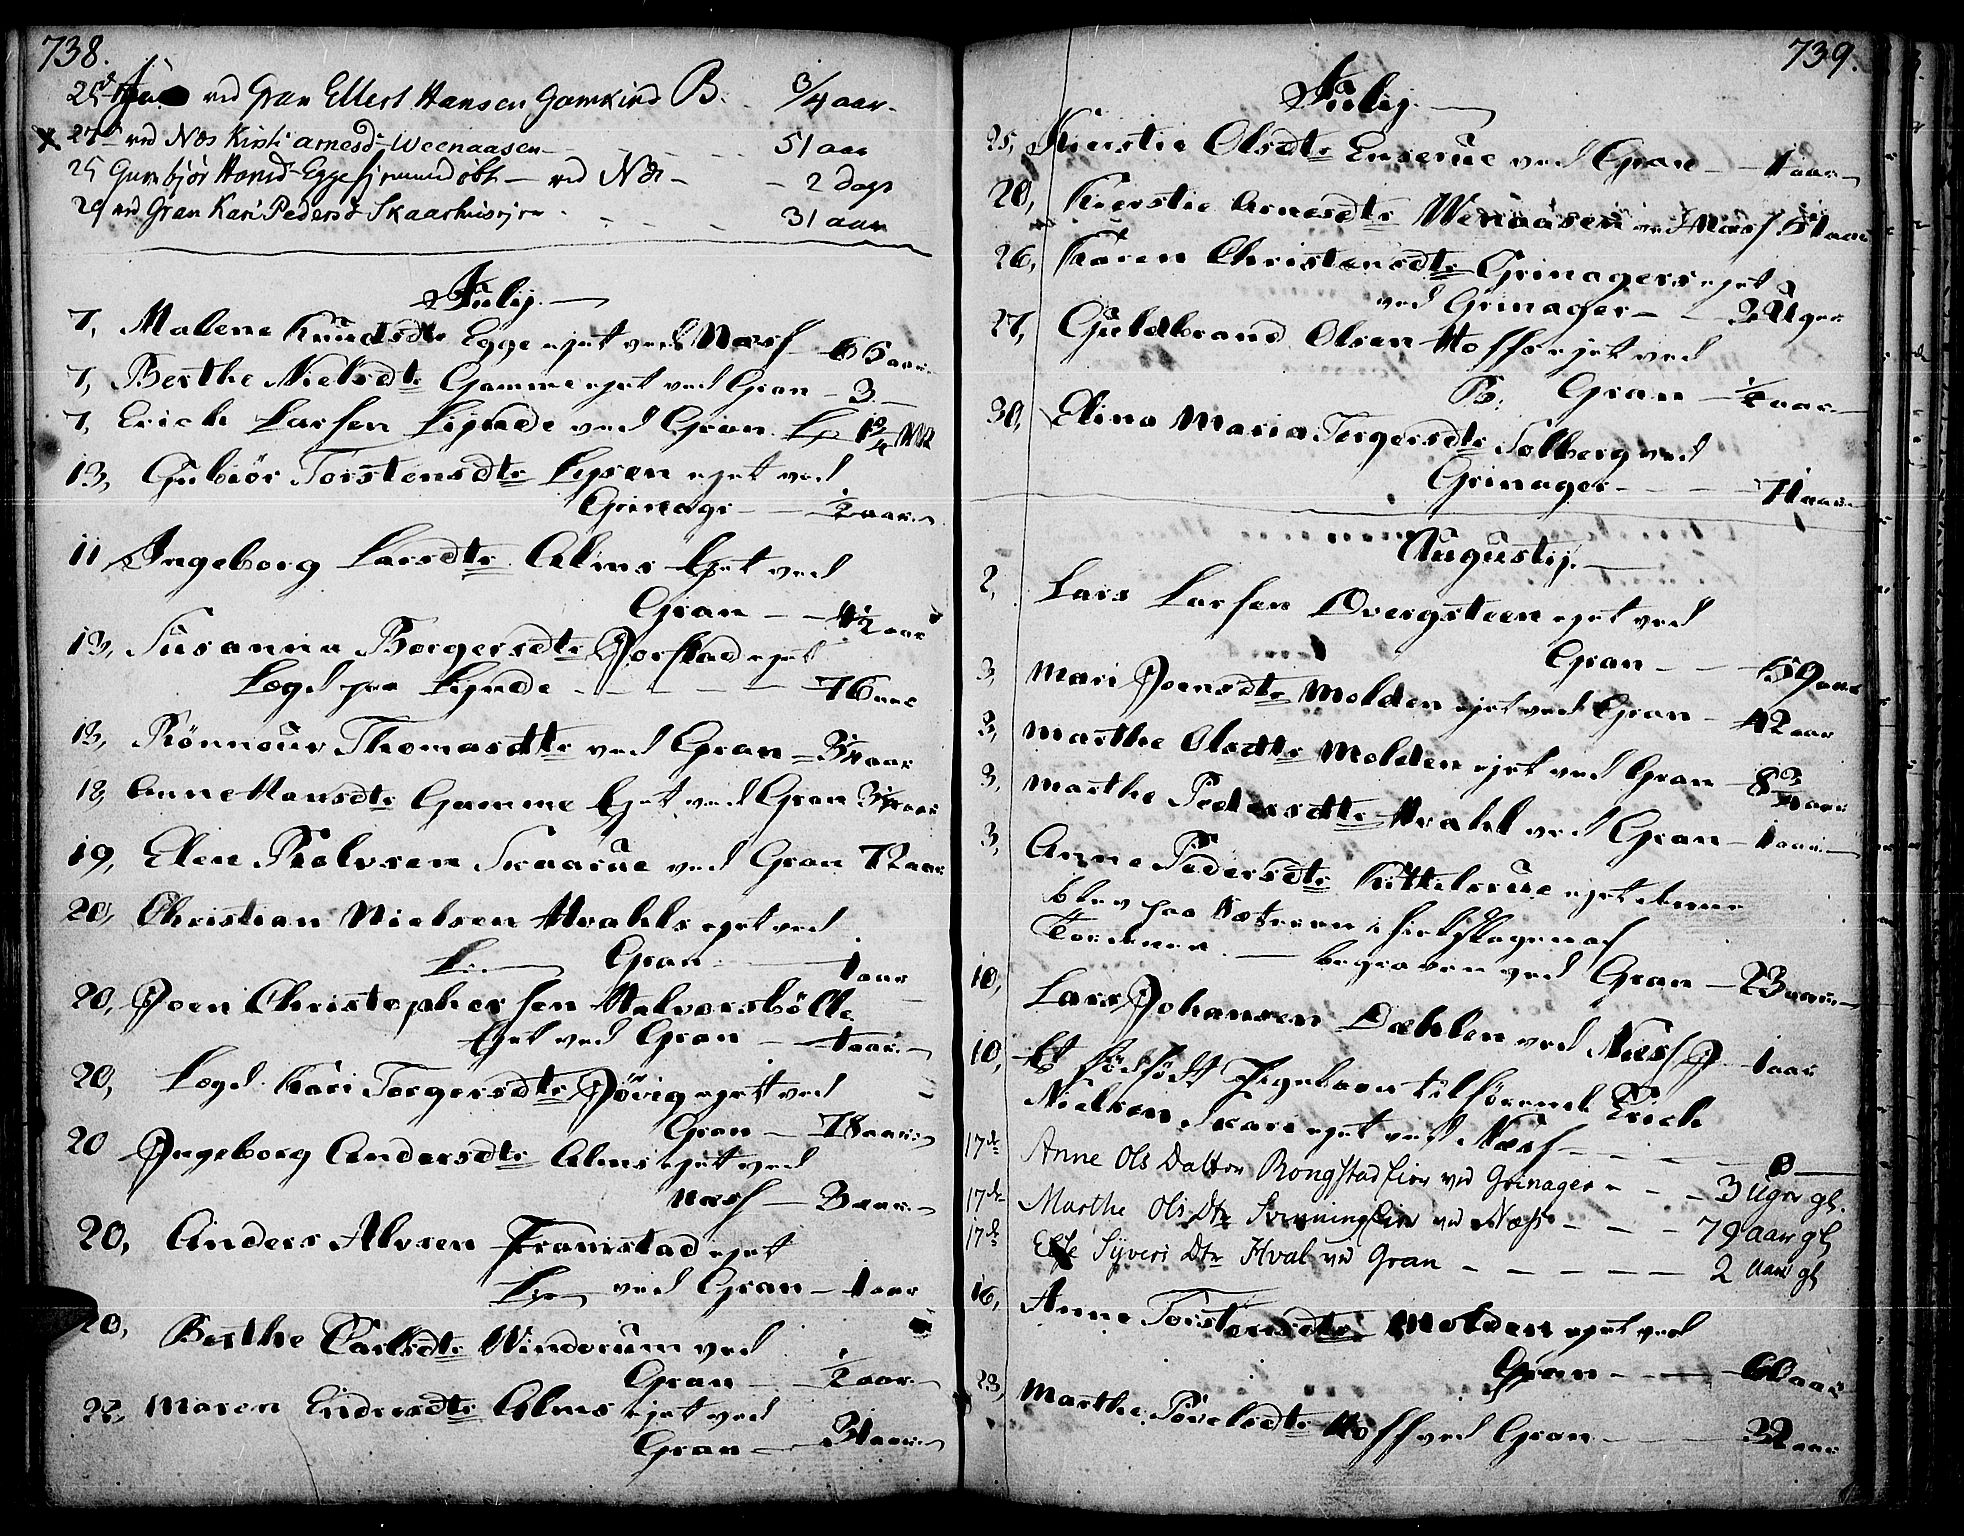 738.
25 ved Gran Ellert Hansen Gamkind B. 3/4 aar.
x 27 ved Næs Kirsti arnesd Weenaasen 51 aar
25 Gunbjør Hansd Egge ved Næs - 2 dage
29 ved Gran Kari Pedersd Skaarhus 31 aar
Julij.
7, Malene Knudsdtr Egge ejet ved Næss 65 aar
7, Berthe Nielsdtr Gamme ejet ved Gran - 3 -
7, Erich Larsen Lynde ved Gran
13, Gubiör Torstensdtr Lysen ejet ved
Grinager - 1/2 aar
11 Ingeborg Larsdtr Alms Ejet ved
Gran
13, Susanna Borgersdtr Jorstad ejet
Legd paa Lynde - 76 aar
13, Rönnouv Thomasdtr ved Gran = 3/4 aar
18, Anne Hansdtr Gamme Ejet ved Gran
19, Elen Skaarue ved Gran 72 aar
20, Christian Nielsen Hvahls ejet ved
Gran - 1 aar
20, Joen Christophersen Halvorsbölle
Ejet ved Gran - 1 aar
20, Legd. Kari Torgersdtr Jövig ejet ved
Gran - 78 aar
20 Ingeborg Andersdtr Alms ejet ved
Næss - 3 aar
20, Anders Alvsen Framstad ejet
ved Gran - 1 aar
20, Berthe Carlsdtr Windorum ved
Gran - 1/2 aar
22, Maren Endresdtr Alms ejet ved
Gran - 31 aar
739.
Julij.
25, Kierstie Olsdtr Enserue ved Gran - 1 aar
20, Kierstie Arnesdtr Wenaasen ved Næss 51 aar
26, Karen Christensdtr Grinagers ejet
ved Grinager - 3 Uger
27, Guldbrand Olsen Hoffs ejet ved
B. Gran - 1/2 aar
30, Elina Maria Torgersdtr Solberg ved
Grinager - 71 aar
Augustij.
2, Lars Larsen Dvergsteen ejet ved
Gran - 59 aar
3, Mari Joensdtr Molden ejet ved Gran - 42 aar
3, Marthe Olsdtr Molden ejet ved Gran - 8 3/4 aar
3, Marthe Pedersdtr Hvahl ved Gran - 1 aar
3, Anne Pedersdtr Kittelsrue ejet denne
blev paa Sæteren ihielslagen af
Tordenen - begraven ved Gran - 23 aar
10, Lars Johansen Dæhlen ved Næss - 1 aar
10, Et dødfødt Pigebarn tilhørende Erich
Nielsen Skari ejet ved Næss - 0
17de Anne Ols Datter Rongstad Eier ved Grinager - 3 Uger gl.
17de Marthe Ols Dtr ved Næss - 79 aar gl
17de Else Syveri Dtr Hval ved Gran - 2 aar gl
16, Anne Torstensdtr Molden ejet ved
Gran - 60 aar
23, Marthe Povelsdtr Hoff ved Gran - 32 aar